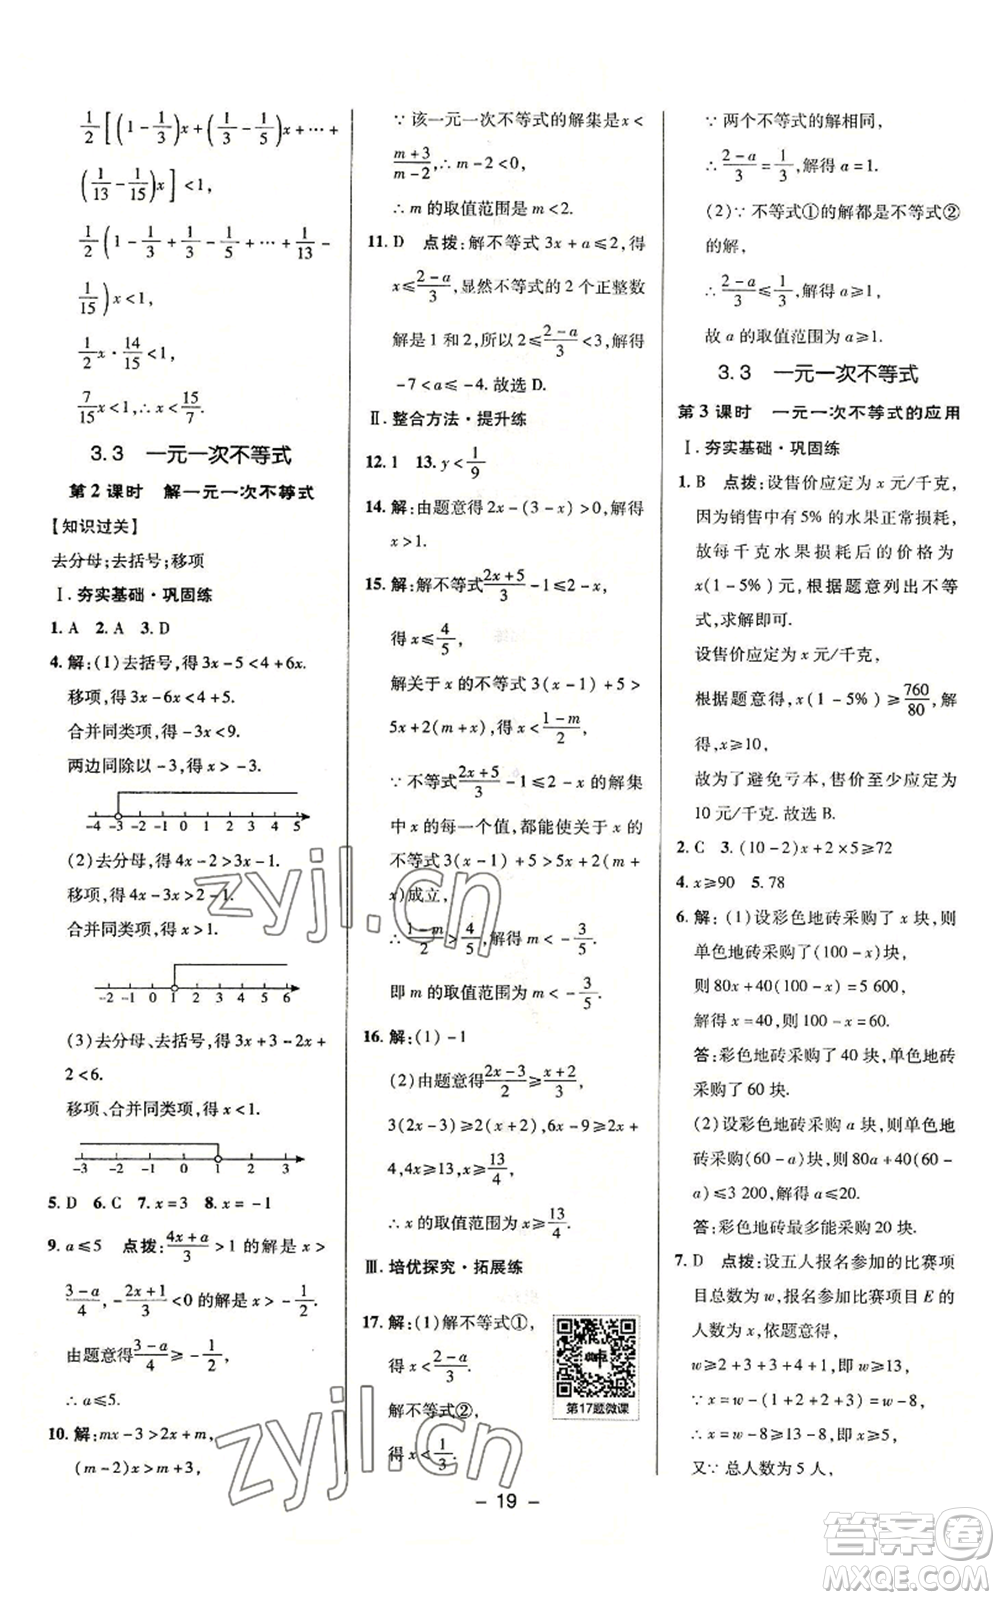 1/2[(1-1/3)x+(1/3-1/5)x+…+
(1/13-1/15)x]<1,
1/2(1-1/3+1/3-1/5+…+1/13-
1/15)x<1,
1/2x·14/15<1,
7/15x<1,∴x<15/7.
3.3 一元一次不等式
第2课时 解一元一次不等式
【知识过关】
去分母;去括号;移项
Ⅰ.夯实基础·巩固练
1.A 2.A 3.D
4.解:(1)去括号,得3x-5<4+6x.
移项,得3x-6x<4+5.
合并同类项,得-3x<9.
两边同除以-3,得x>-3.
-4 -3 -2 -1 0 1 2 3 4 5
(2)去分母,得4x-2>3x-1.
移项,得4x-3x>2-1.
合并同类项,得x>1.
-2 -1 0 1 2 3 4 5 6
(3)去分母、去括号,得3x+3-2x+
2<6.
移项、合并同类项,得x<1.
-3 -2 -1 0 1 2 3
5.D 6.C 7.x=3 8.x=-1
9.a≤5 点拨:(4x+a)/3>1的解是x>
(3-a)/4,-(2x+1)/3<0的解是x>-1/2,
由题意得(3-a)/4≥-1/2,
∴a≤5.
10.解:mx-3>2x+m,
(m-2)x>m+3,
∵该一元一次不等式的解集是x<
(m+3)/(m-2),∴m-2<0,
∴m的取值范围是m<2.
11.D 点拨:解不等式3x+a≤2,得
x≤(2-a)/3,显然不等式的2个正整数
解是1和2,所以2≤(2-a)/3<3,解得
-7<a≤-4.故选D.
Ⅱ.整合方法·提升练
12.1 13.y<1/9
14.解:由题意得2x-(3-x)>0,解得
x>1.
15.解:解不等式(2x+5)/3-1≤2-x,
得x≤4/5,
解关于x的不等式3(x-1)+5>
5x+2(m+x),得x<(1-m)/2,
∵不等式(2x+5)/3-1≤2-x的解集
中x的每一个值,都能使关于x的
不等式3(x-1)+5>5x+2(m+
x)成立,
∴(1-m)/2>4/5,解得m<-3/5,
即m的取值范围为m<-3/5.
16.解:(1)-1
(2)由题意得(2x-3)/2≥(x+2)/3,
3(2x-3)≥2(x+2),6x-9≥2x+
4,4x≥13,x≥13/4,
∴x的取值范围是x≥13/4.
Ⅲ.培优探究·拓展练
17.解:(1)解不等式①,
得x<(2-a)/3,
解不等式②,
得x<1/3.
第17题微课
∵两个不等式的解相同,
∴(2-a)/3=1/3,解得a=1.
(2)∵不等式①的解都是不等式②
的解,
∴(2-a)/3≤1/3,解得a≥1.
故a的取值范围为a≥1.
3.3 一元一次不等式
第3课时 一元一次不等式的应用
Ⅰ.夯实基础·巩固练
1.B 点拨:设售价应定为x元/千克,
因为销售中有5%的水果正常损耗,
故每千克水果损耗后的价格为
x(1-5%)元,根据题意列出不等
式,求解即可.
设售价应定为x元/千克,
根据题意得,x(1-5%)≥760/80,解
得,x≥10,
故为了避免亏本,售价至少应定为
10元/千克.故选B.
2.C 3.(10-2)x+2×5≥72
4.x≥90 5.78
6.解:(1)设彩色地砖采购了x块,则
单色地砖采购了(100-x)块,
则80x+40(100-x)=5 600,
解得x=40,则100-x=60.
答:彩色地砖采购了40块,单色地砖
采购了60块.
(2)设彩色地砖采购a块,则单色地
砖采购(60-a)块,则80a+40(60-
a)≤3 200,解得a≤20.
答:彩色地砖最多能采购20块.
7.D 点拨:设五人报名参加的比赛项
目总数为w,报名参加比赛项目E的
人数为x,依题意得,
w≥2+3+3+4+1,即w≥13,
∵x=w-(1+2+2+3)=w-8,
∴x=w-8≥13-8,即x≥5,
又∵总人数为5人,
- 19 -
zyjl.cn
zyjl.cn
答案圈
MXQE.COM